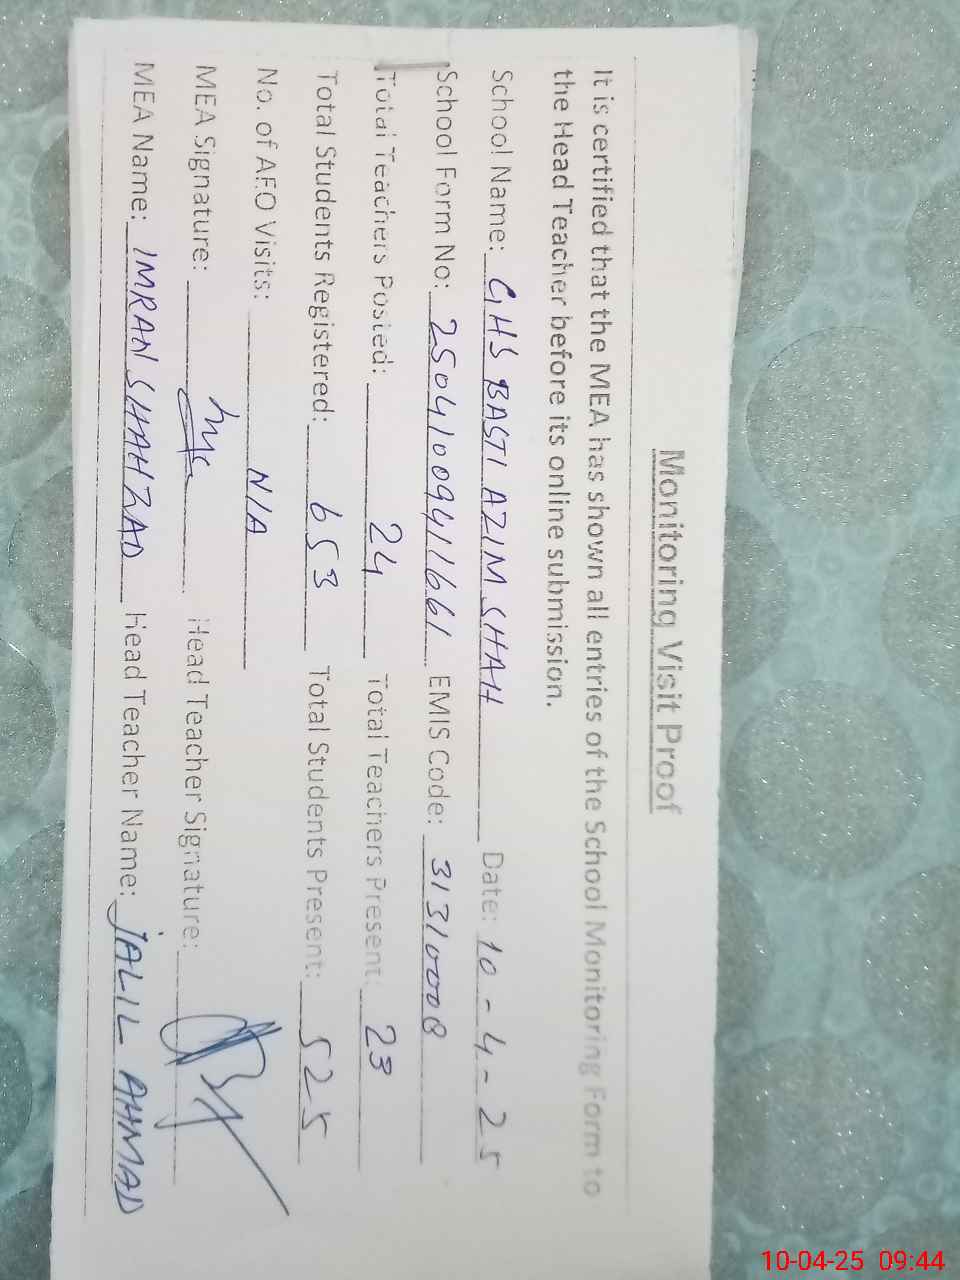 Monitoring Visit Proof
It is certified that the MEA has shown all entries of the School Monitoring Form to
the Head Teacher before its online submission.
School Name: GHS BASTI AZIM SHAH Date: 10-4-25
School Form No: 25041009411661 EMIS Code: 31310008
Total Teachers Posted: 24 Total Teachers Present: 23
Total Students Registered: 653 Total Students Present: 525
No. of AEO Visits: N/A
MEA Signature: Head Teacher Signature:
MEA Name: IMRAN SHAHZAD Head Teacher Name: JALIL AHMAD
10-04-25 09:44